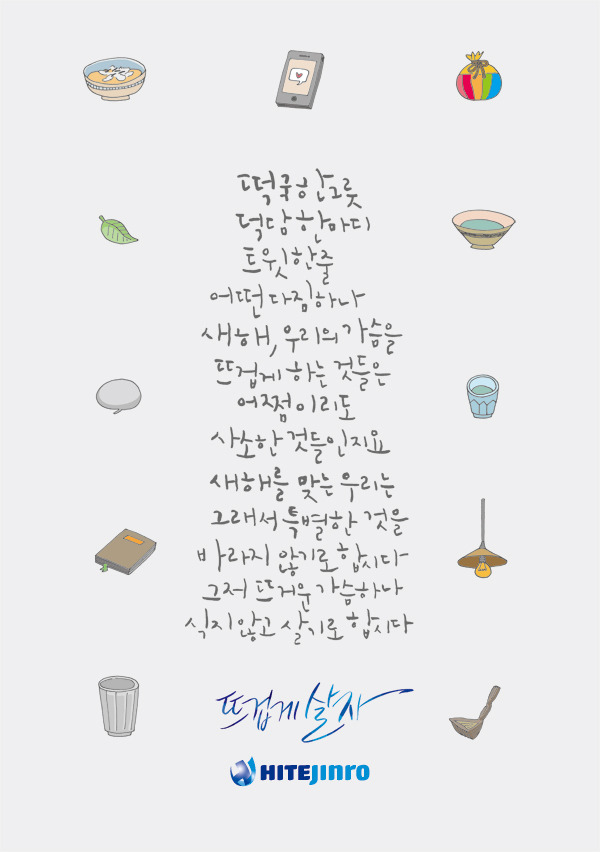 떡국 한 그릇
덕담 한마디
트윗 한 줄
어떤 다짐 하나
새해, 우리의 가슴을
뜨겁게 하는 것들은
어쩜 이리도
사소한 것들인지요
새해를 맞는 우리는
그래서 특별한 것을
바라지 않기로 합시다
그저 뜨거운 가슴 하나
식지 않고 살기로 합시다
뜨겁게 살자
HITEJINRO